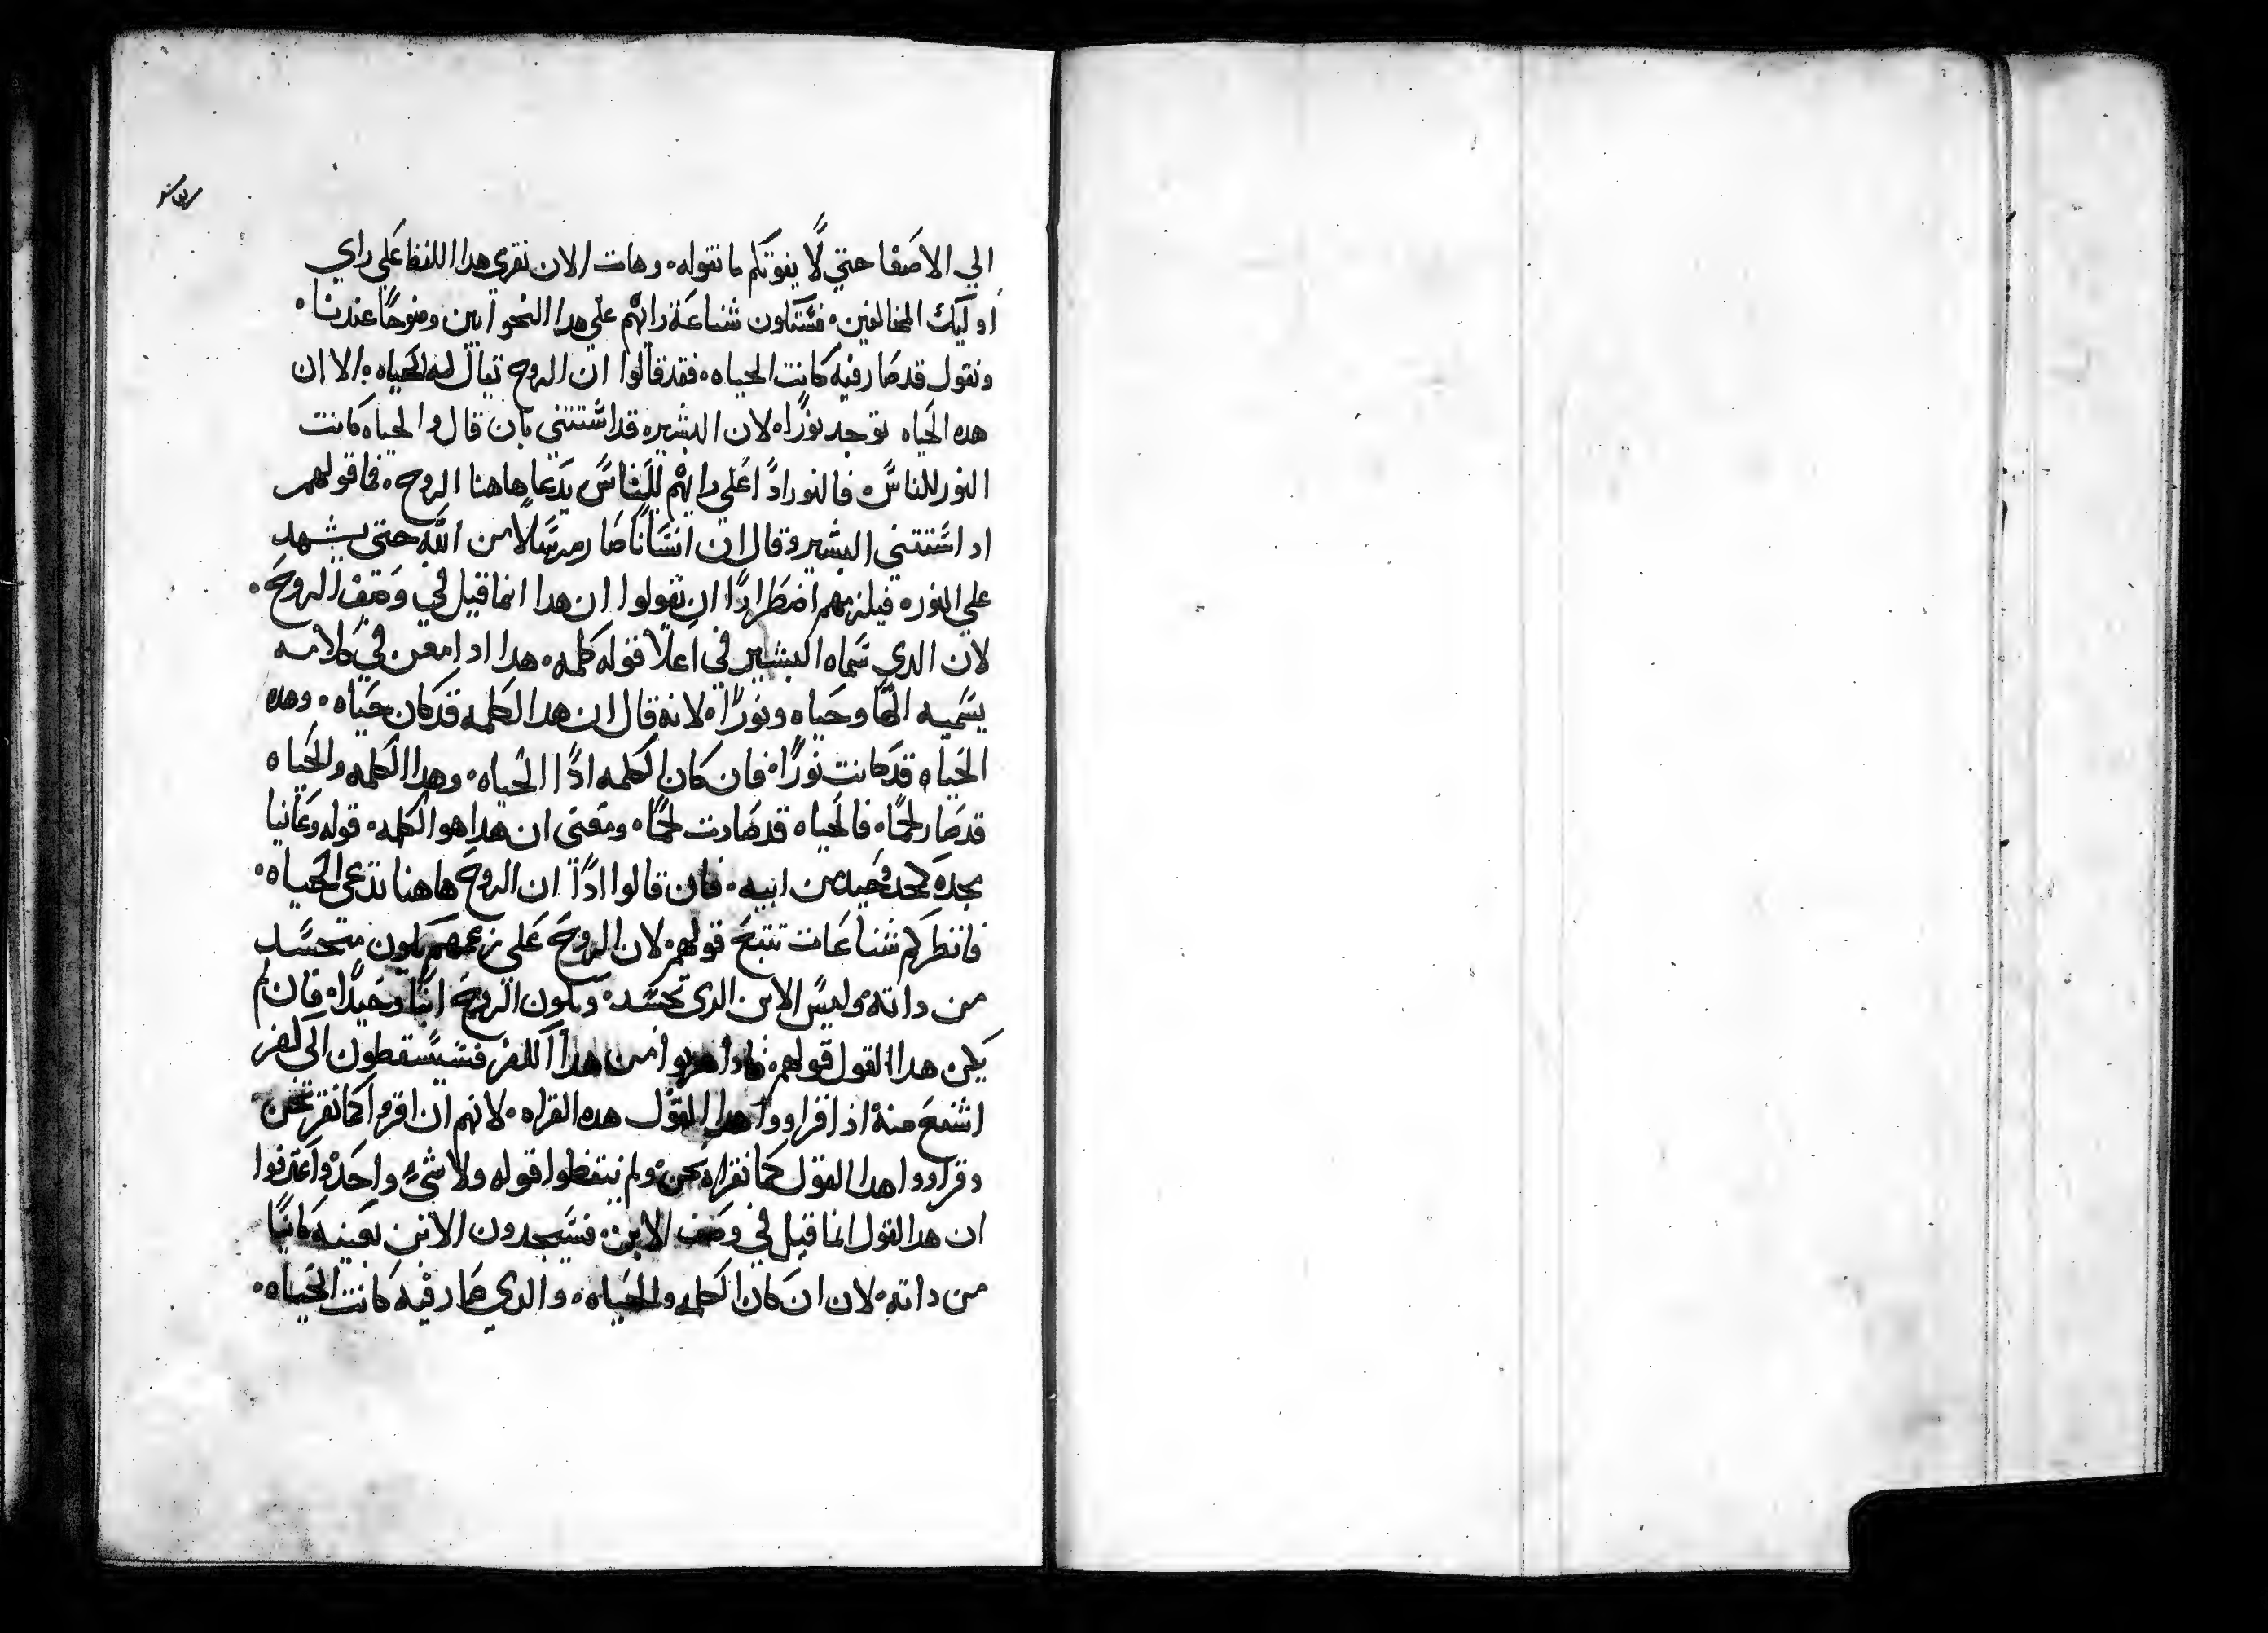 الي الاصغا حتي لا يفوتكم ما نقوله۰ وهات الان نقري هدا اللفظ علي راي
اوليك المخالفين۰ فستكون شناعة رايهم علي هدا النحو ابين وضوحًا عندنا۰
ونقول قد صار فيه كانت الحياه۰ فقد قالوا ان الروح تقال له الحياه۰ الا ان
هده الحياه توجد نورًا۰ لان البشير قد استتني بان قال والحياه كانت
النور للناس۰ فالنور ادًا علي رايهم للناس يدعا هاهنا الروح۰ فما قولهم
اد استتني البشير وقال ان انسانًا صار مرسلًا من الله حتي يشهد
علي النور۰ فيلزمهم اضطرارًا ان يقولوا ان هدا انما قيل في وصف الروح۰
لان الدي سماه البشير في اعلا قوله كلمه۰ هدا اد امعن في كلامه
يسميه الهًا وحياه ونورًا۰ لانه قال ان هدا الكلمه قد كان حياه۰ وهده
الحياه قد كانت نورًا۰ فان كان الكلمه ادًا الحياه۰ وهدا الكلمه والحياه
قد صار لحمًا۰ فالحياه قد صارت لحمًا۰ ومعني ان هدا هو الكلمه۰ قوله وعاينا
مجده كمجد وحيد من ابيه۰ فان قالوا ادًا ان الروح هاهنا تدعي الحياه۰
فانظر كم شناعات تتبع قولهم۰ لان الروح علي زعمهم يكون متجسد
من داته۰ وليس الابن الدي تجسد۰ ويكون الروح ابنًا وحيدًا۰ فان لم
يكن هدا القول قولهم۰ فادا هربوا من هدا الكفر فسيسقطون الي كفر
اشنع منه اذا قراووا هدا القول هده القراه۰ لانهم ان اقروا كما نقر نحن
وقراووا هدا القول كما نقراه نحن۰ ولم ينقطوا قوله ولا شيً واحد۰ واعترفوا
ان هدا القول انما قيل في وصف الابن۰ فسيجدون الابن بعينه كاينًا
من داته۰ لان ان كان الكلمه والحياه۰ والدي صار فيه كانت الحياه۰